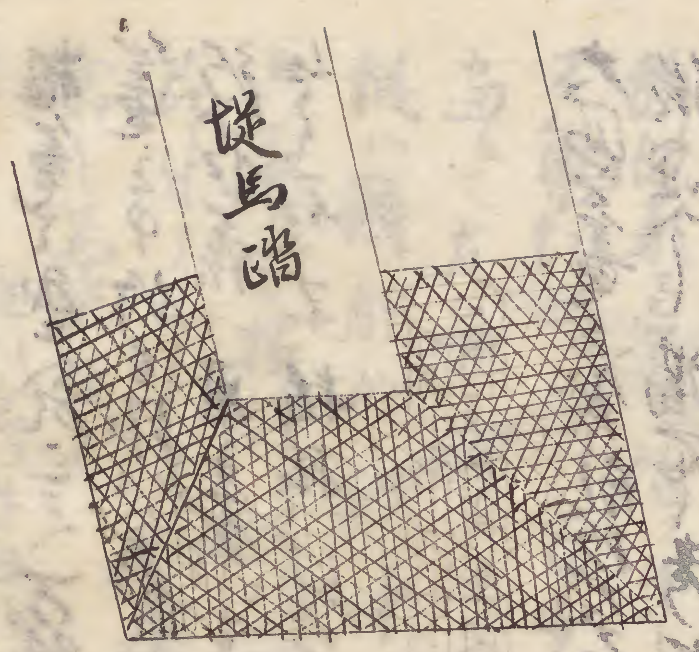 堤馬踏